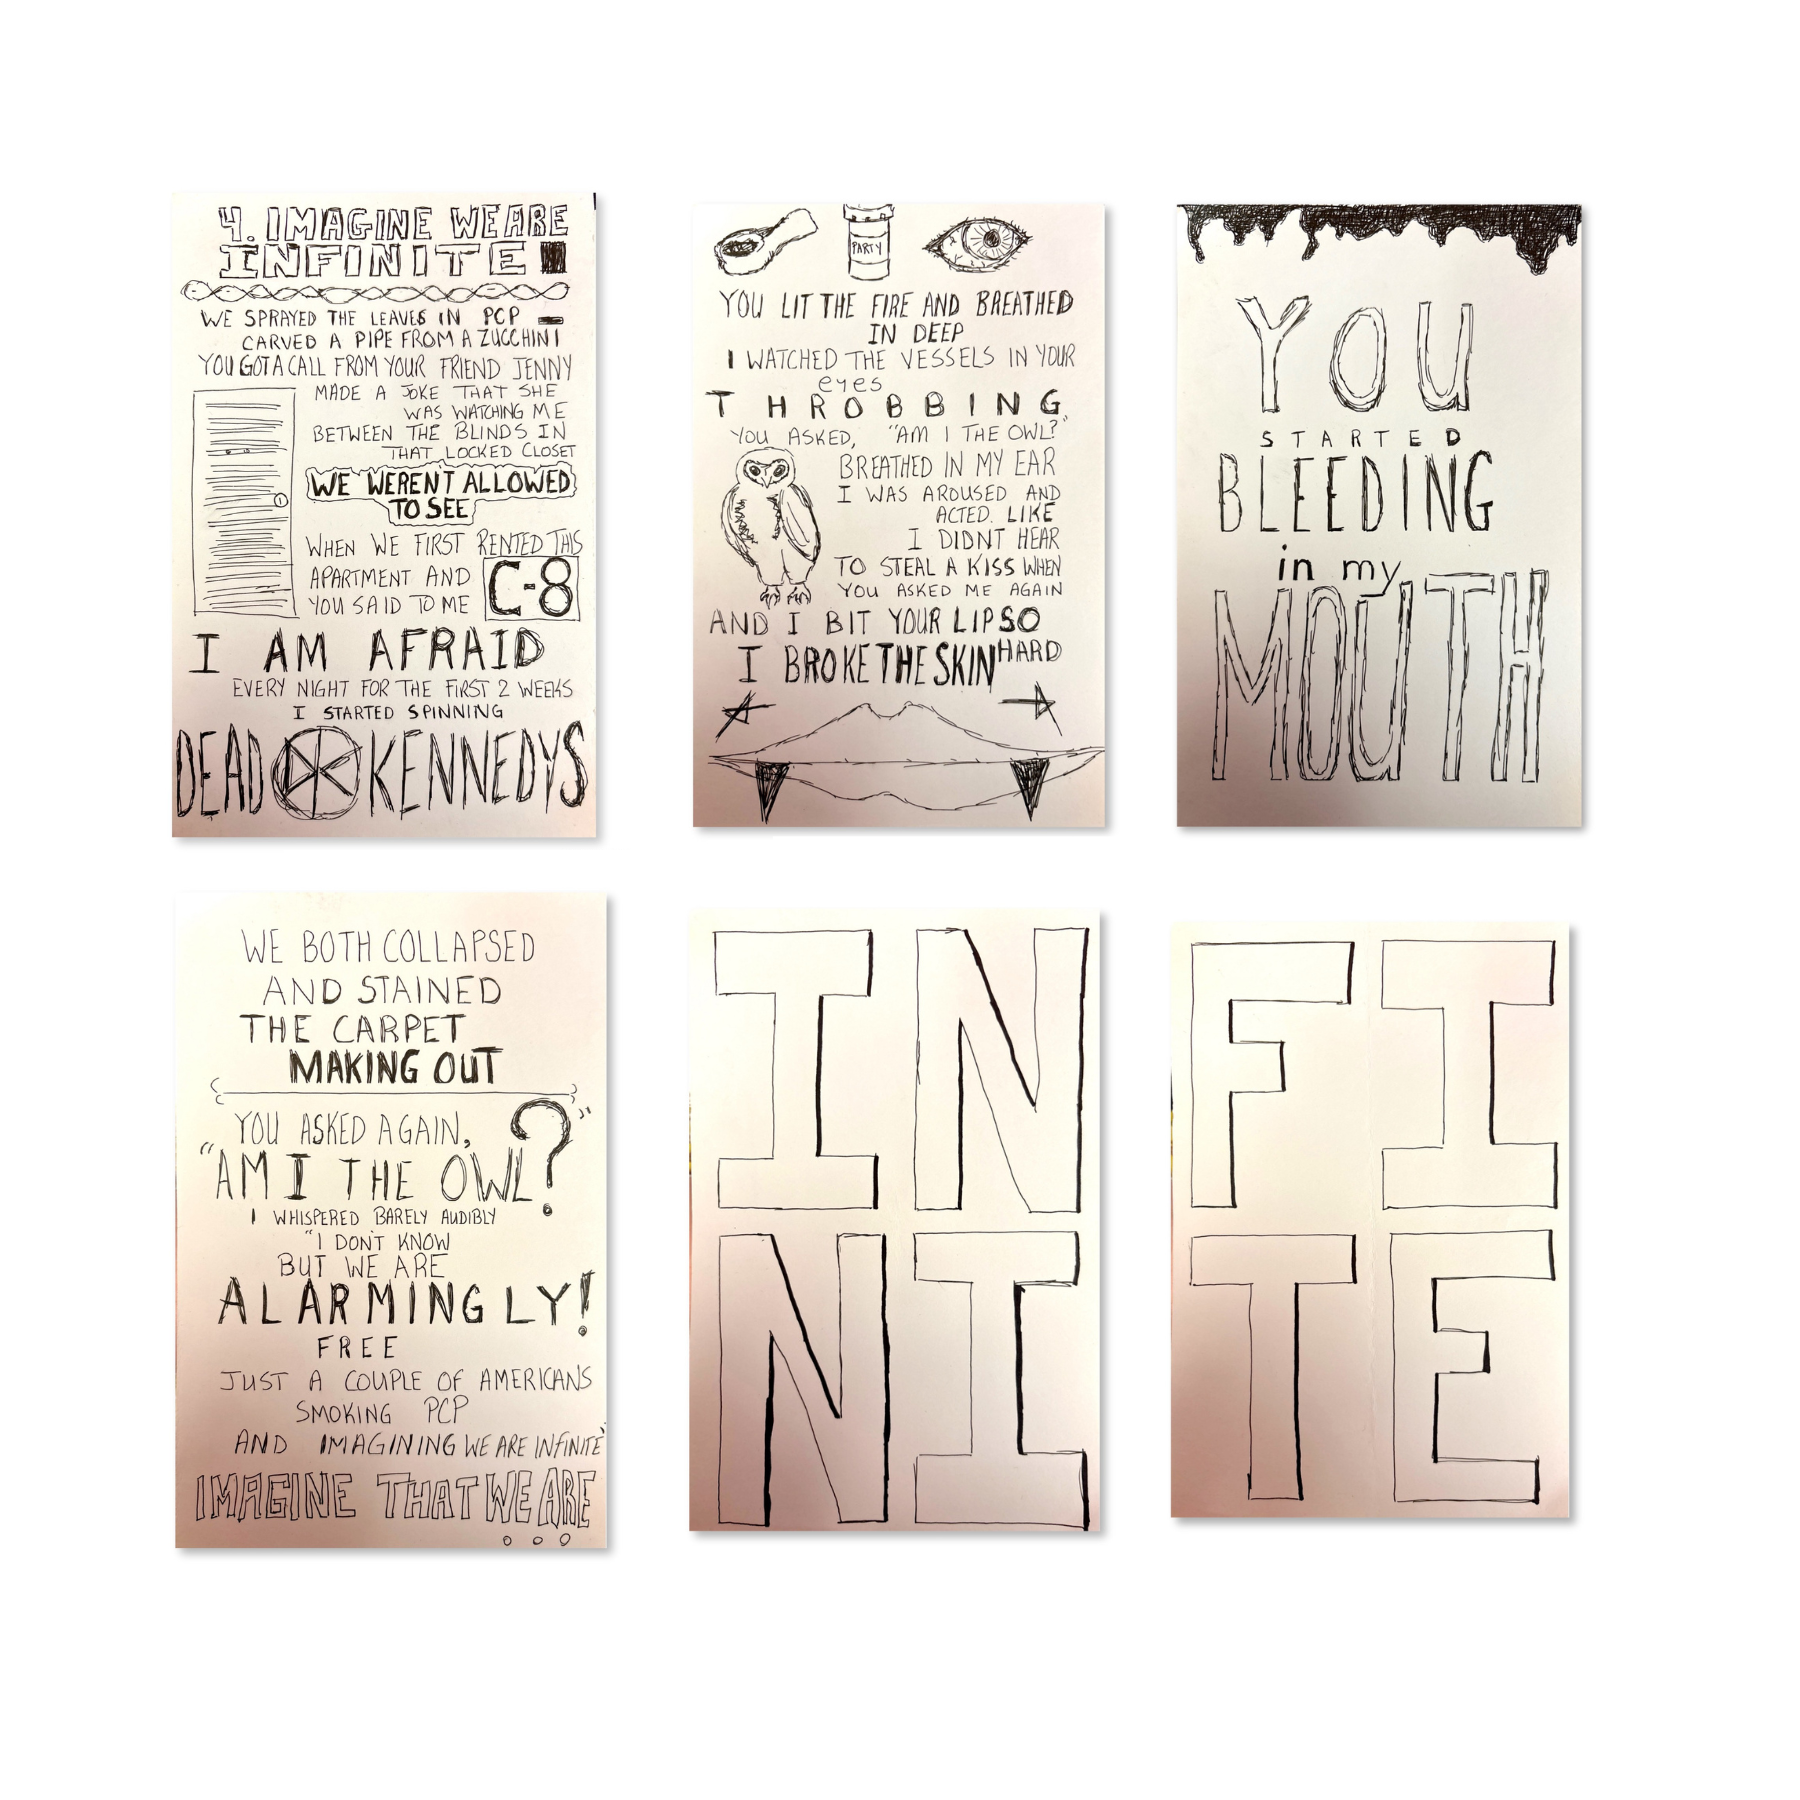 4. IMAGINE WE ARE
INFINITE
WE SPRAYED THE LEAVES IN PCP
CARVED A PIPE FROM A ZUCCHINI
YOU GOT A CALL FROM YOUR FRIEND JENNY
MADE A JOKE THAT SHE
WAS WATCHING ME
BETWEEN THE BLINDS IN
THAT LOCKED CLOSET
WE WEREN'T ALLOWED
TO SEE
WHEN WE FIRST RENTED THIS
APARTMENT AND
YOU SAID TO ME
C-8
I AM AFRAID
EVERY NIGHT FOR THE FIRST 2 WEEKS
I STARTED SPINNING
DEAD DK KENNEDYS
PARTY
YOU LIT THE FIRE AND BREATHED
IN DEEP
I WATCHED THE VESSELS IN YOUR
eyes
THROBBING
YOU ASKED, "AM I THE OWL?"
BREATHED IN MY EAR
I WAS AROUSED AND
ACTED. LIKE
I DIDNT HEAR
TO STEAL A KISS WHEN
YOU ASKED ME AGAIN
AND I BIT YOUR LIP SO
HARD
I BROKE THE SKIN
YOU
STARTED
BLEEDING
in my
MOUTH
WE BOTH COLLAPSED
AND STAINED
THE CARPET
MAKING OUT
YOU ASKED AGAIN,
"AM I THE OWL?"
I WHISPERED BARELY AUDIBLY
"I DON'T KNOW
BUT WE ARE
ALARMINGLY!
FREE
JUST A COUPLE OF AMERICANS
SMOKING PCP
AND IMAGINING WE ARE INFINITE"
IMAGINE THAT WE ARE
...
IN
NI
FI
TE